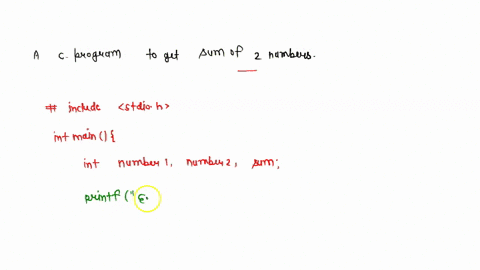 A c. program to get sum of 2 numbers.
# include <stdio.h>
int main () {
int number 1, number 2, sum;
printf ("E